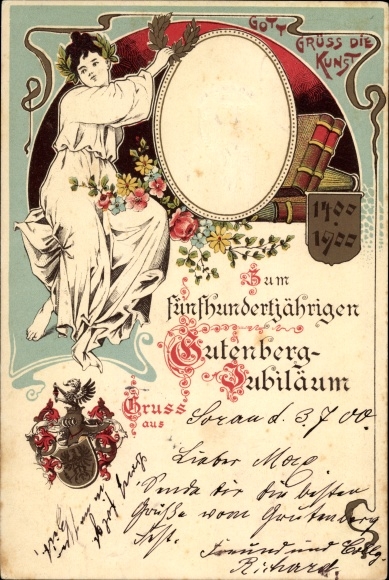 GOTT
GRÜSS DIE
KUNST
1400
1900
Zum
fünfhundertjährigen
Gutenberg-
Jubiläum
Gruss
aus
Sorau d. 3.7.00.
Lieber Max
Sende dir die besten
Grüße vom Gutenberg
Fest.
Freund und Collg.
Richard.